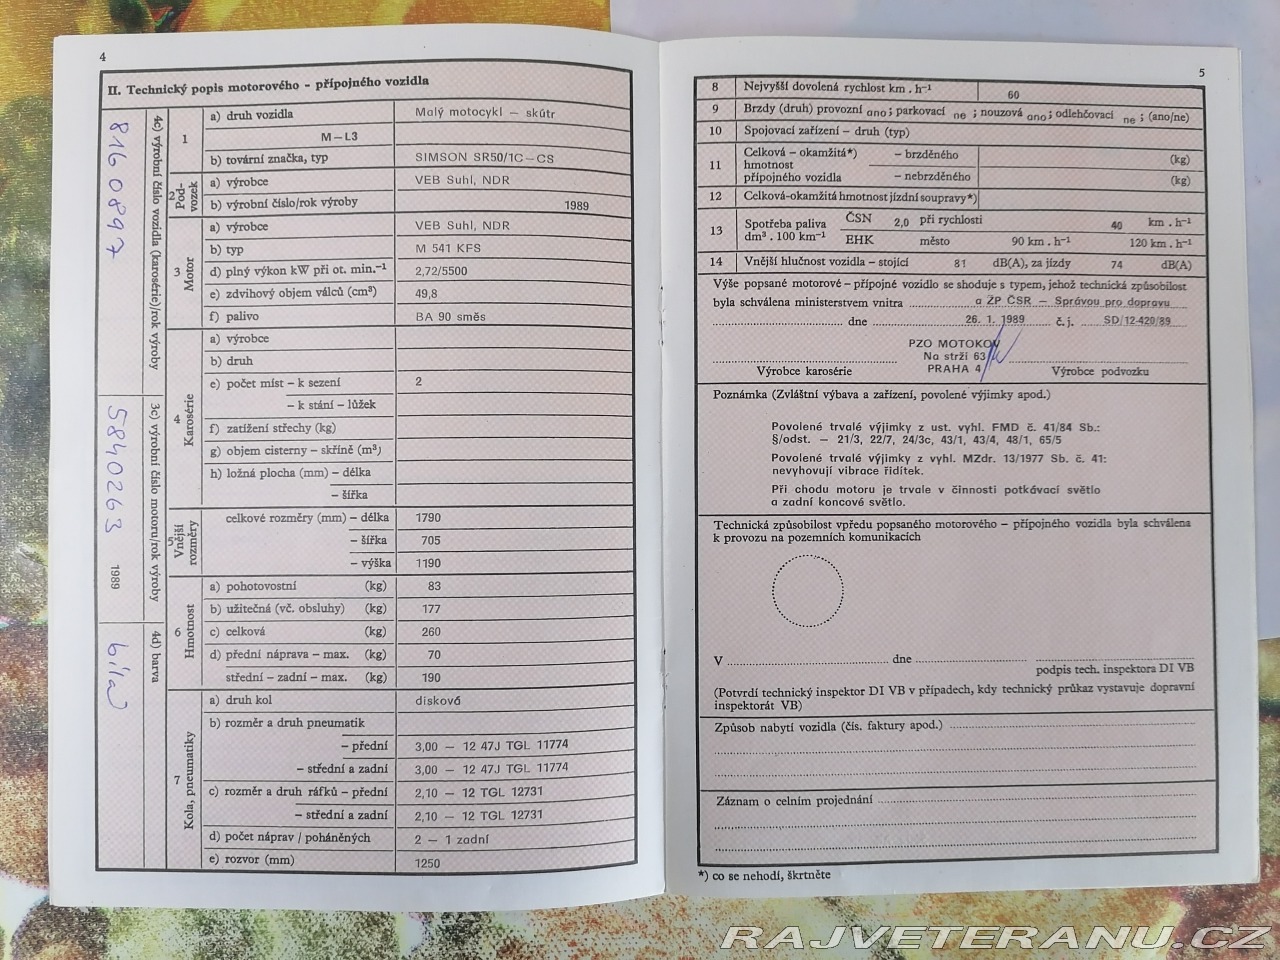 4
II. Technický popis motorového - přípojného vozidla
4c) výrobní číslo vozidla (karosérie)/rok výroby
816 0897
3c) výrobní číslo motoru/rok výroby
5840263 1989
4d) barva
bílá
1
a) druh vozidla Malý motocykl — skútr
M—L3
b) tovární značka, typ SIMSON SR50/1C—CS
2 Pod-
vozek
a) výrobce VEB Suhl, NDR
b) výrobní číslo/rok výroby 1989
3 Motor
a) výrobce VEB Suhl, NDR
b) typ M 541 KFS
d) plný výkon kW při ot. min.⁻¹ 2,72/5500
e) zdvihový objem válců (cm³) 49,8
f) palivo BA 90 směs
4 Karosérie
a) výrobce
b) druh
e) počet míst – k sezení 2
– k stání – lůžek
f) zatížení střechy (kg)
g) objem cisterny – skříně (m³)
h) ložná plocha (mm) – délka
– šířka
5 Vnější
rozměry
celkové rozměry (mm) – délka 1790
– šířka 705
– výška 1190
6 Hmotnost
a) pohotovostní (kg) 83
b) užitečná (vč. obsluhy) (kg) 177
c) celková (kg) 260
d) přední náprava – max. (kg) 70
střední – zadní – max. (kg) 190
7 Kola, pneumatiky
a) druh kol disková
b) rozměr a druh pneumatik
– přední 3,00 — 12 47J TGL 11774
– střední a zadní 3,00 — 12 47J TGL 11774
c) rozměr a druh ráfků – přední 2,10 — 12 TGL 12731
– střední a zadní 2,10 — 12 TGL 12731
d) počet náprav / poháněných 2 — 1 zadní
e) rozvor (mm) 1250
5
8 Nejvyšší dovolená rychlost km . h⁻¹ 60
9 Brzdy (druh) provozní ano ; parkovací ne ; nouzová ano ; odlehčovací ne ; (ano/ne)
10 Spojovací zařízení – druh (typ)
11 Celková – okamžitá*) – brzděného (kg)
hmotnost
přípojného vozidla – nebrzděného (kg)
12 Celková-okamžitá hmotnost jízdní soupravy*)
13 Spotřeba paliva ČSN 2,0 při rychlosti 40 km . h⁻¹
dm³ . 100 km⁻¹ EHK město 90 km . h⁻¹ 120 km . h⁻¹
14 Vnější hlučnost vozidla – stojící 81 dB(A), za jízdy 74 dB(A)
Výše popsané motorové – přípojné vozidlo se shoduje s typem, jehož technická způsobilost
byla schválena ministerstvem vnitra a ŽP ČSR — Správou pro dopravu
dne 26. 1. 1989 č. j. SD/12-420/89
PZO MOTOKOV
Na strži 63
PRAHA 4
Výrobce karosérie Výrobce podvozku
Poznámka (Zvláštní výbava a zařízení, povolené výjimky apod.)
Povolené trvalé výjimky z ust. vyhl. FMD č. 41/84 Sb.:
§/odst. — 21/3, 22/7, 24/3c, 43/1, 43/4, 48/1, 65/5
Povolené trvalé výjimky z vyhl. MZdr. 13/1977 Sb. č. 41:
nevyhovují vibrace řidítek.
Při chodu motoru je trvale v činnosti potkávací světlo
a zadní koncové světlo.
Technická způsobilost vpředu popsaného motorového – přípojného vozidla byla schválena
k provozu na pozemních komunikacích
V dne
podpis tech. inspektora DI VB
(Potvrdí technický inspektor DI VB v případech, kdy technický průkaz vystavuje dopravní
inspektorát VB)
Způsob nabytí vozidla (čís. faktury apod.)
Záznam o celním projednání
*) co se nehodí, škrtněte
RAJVETERANU.CZ